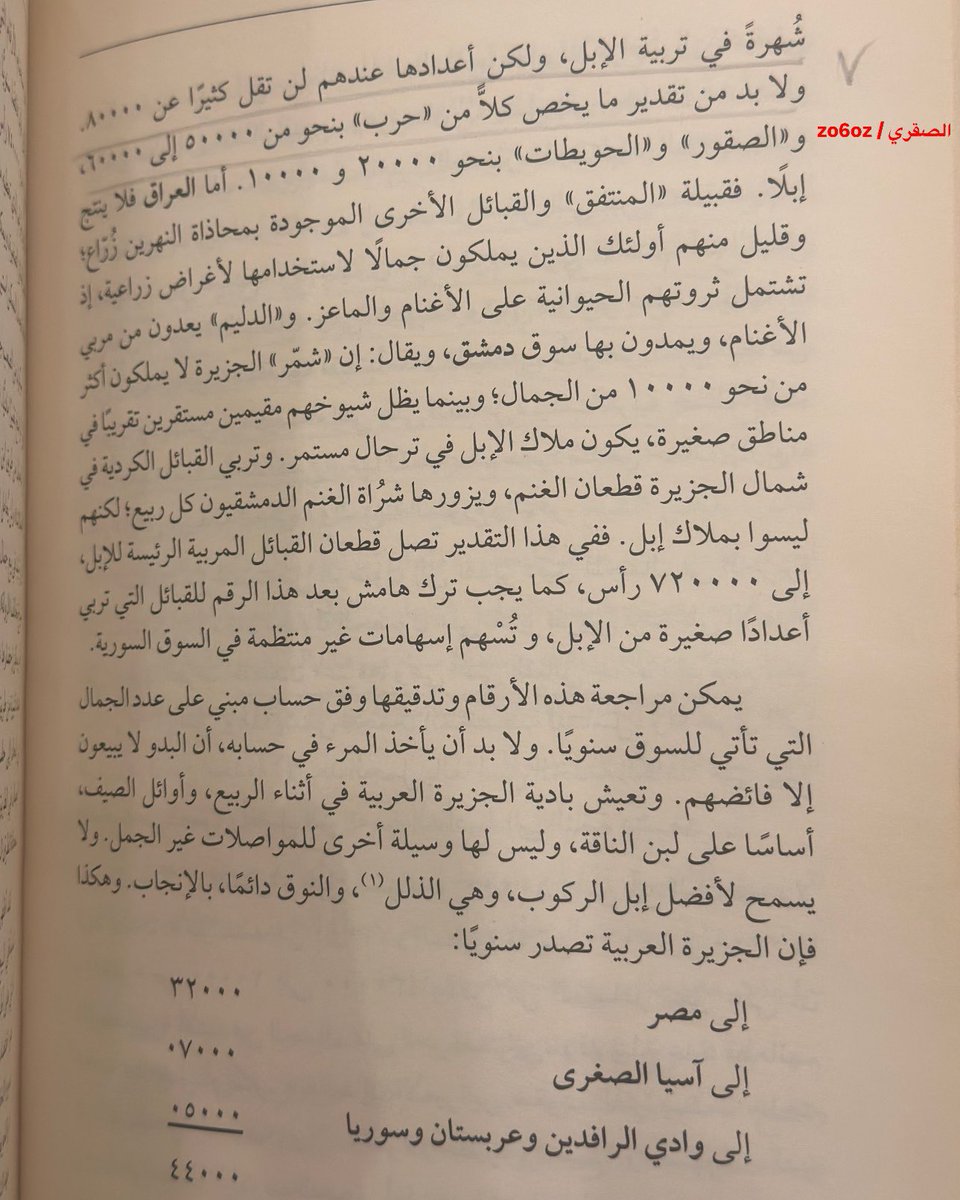 شُهرةً في تربية الإبل، ولكن أعدادها عندهم لن تقل كثيرًا عن ٨٠٠٠٠.
ولا بد من تقدير ما يخص كلاًّ من «حرب» بنحو من ٥٠٠٠٠ إلى ٦٠٠٠٠،
و«الصقور» و«الحويطات» بنحو ٢٠٠٠٠ و ١٠٠٠٠. أما العراق فلا ينتج
إبلًا. فقبيلة «المنتفق» والقبائل الأخرى الموجودة بمحاذاة النهرين زُرّاع؛
وقليل منهم أولئك الذين يملكون جمالًا لاستخدامها لأغراض زراعية، إذ
تشتمل ثروتهم الحيوانية على الأغنام والماعز. و«الدليم» يعدون من مربي
الأغنام، ويمدون بها سوق دمشق، ويقال: إن «شمّر» الجزيرة لا يملكون أكثر
من نحو ١٠٠٠٠ من الجمال؛ وبينما يظل شيوخهم مقيمين مستقرين تقريبًا في
مناطق صغيرة، يكون ملاك الإبل في ترحال مستمر. وتربي القبائل الكردية في
شمال الجزيرة قطعان الغنم، ويزورها شرُاة الغنم الدمشقيون كل ربيع؛ لكنهم
ليسوا بملاك إبل. ففي هذا التقدير تصل قطعان القبائل المربية الرئيسة للإبل،
إلى ٧٢٠٠٠٠ رأس، كما يجب ترك هامش بعد هذا الرقم للقبائل التي تربي
أعدادًا صغيرة من الإبل، و تُسْهم إسهامات غير منتظمة في السوق السورية.
يمكن مراجعة هذه الأرقام وتدقيقها وفق حساب مبني على عدد الجمال
التي تأتي للسوق سنويًا. ولا بد أن يأخذ المرء في حسابه، أن البدو لا يبيعون
إلا فائضهم. وتعيش بادية الجزيرة العربية في أثناء الربيع، وأوائل الصيف،
أساسًا على لبن الناقة، وليس لها وسيلة أخرى للمواصلات غير الجمل. ولا
يسمح لأفضل إبل الركوب، وهي الذلل(١)، والنوق دائمًا، بالإنجاب. وهكذا
فإن الجزيرة العربية تصدر سنويًا:
إلى مصر ٣٢٠٠٠
إلى آسيا الصغرى ٠٧٠٠٠
إلى وادي الرافدين وعربستان وسوريا ٠٥٠٠٠
٤٤٠٠٠
الصقري / zo6oz